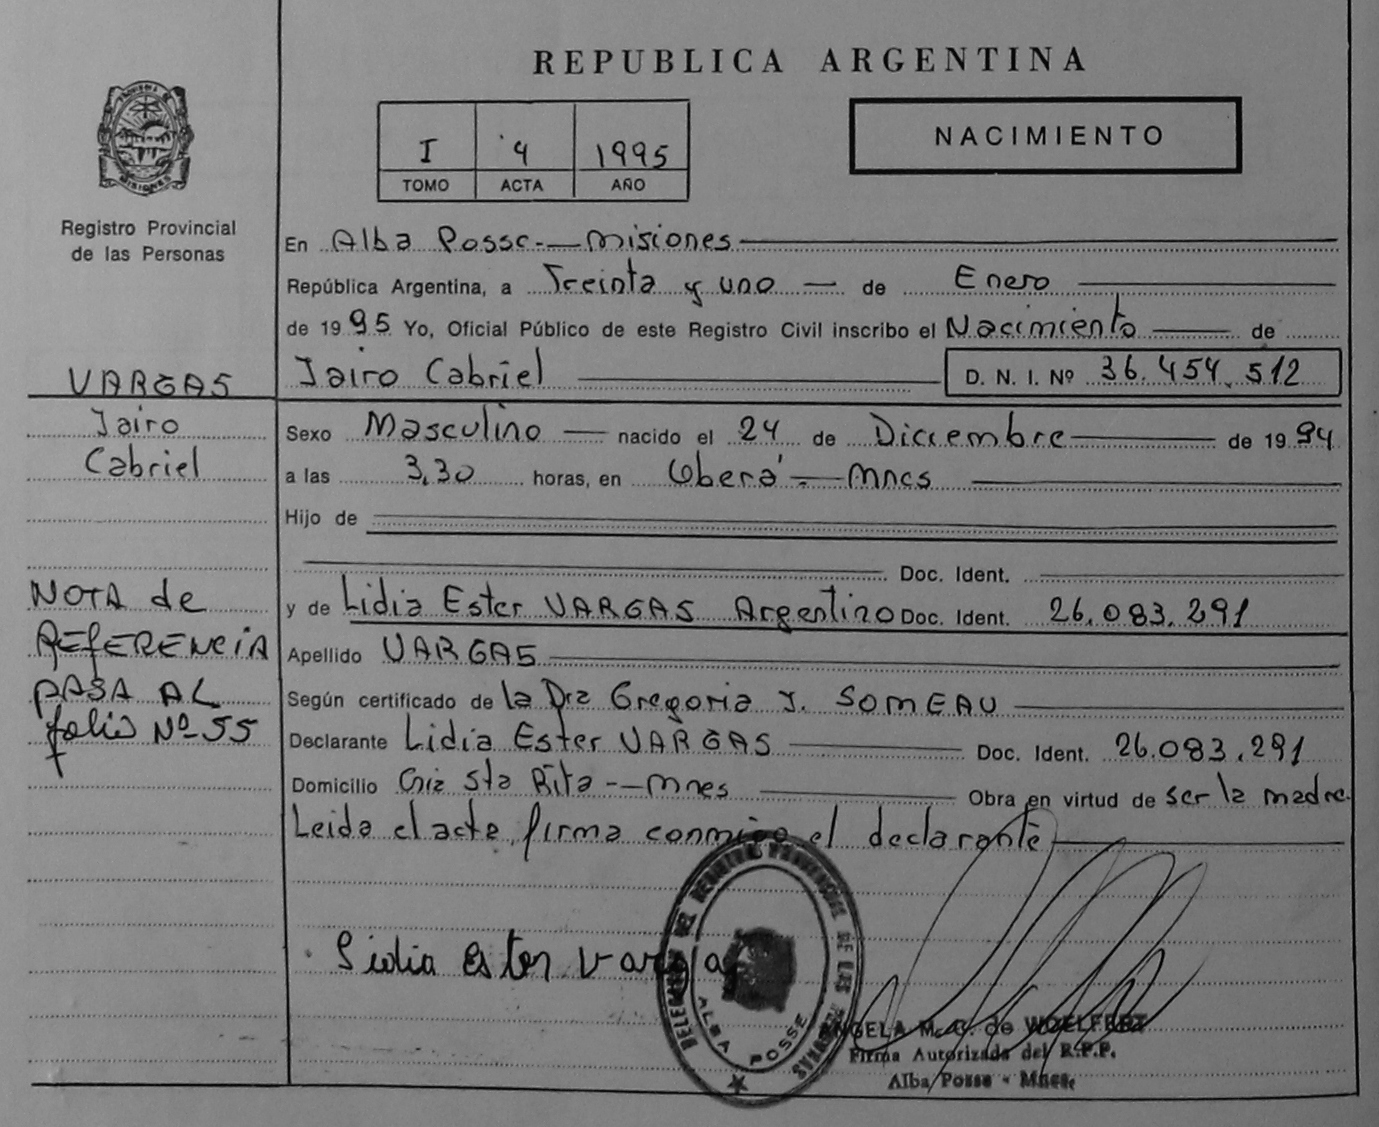 REPUBLICA ARGENTINA
I 4 1995
TOMO ACTA AÑO
NACIMIENTO
MISIONES
Registro Provincial
de las Personas
En Alba Posse.- Misiones
República Argentina, a Treinta y uno de Enero
de 1995 Yo, Oficial Público de este Registro Civil inscribo el Nacimiento de
Jairo Cabriel D. N. I. Nº 36.454.512
VARGAS
Jairo
Cabriel
Sexo Masculino nacido el 24 de Diciembre de 1994
a las 3,30 horas, en Oberá - Mnes
Hijo de
Doc. Ident.
y de Lidia Ester VARGAS Argentino Doc. Ident. 26.083.291
Apellido VARGAS
Según certificado de la Dra Gregoria J. SOMEAU
Declarante Lidia Ester VARGAS Doc. Ident. 26.083.291
Domicilio Sta Rita -- Mnes Obra en virtud de ser la madre.
Leida el acta, firma conmigo el declarante
NOTA de
REFERENCIA
PASA AL
folio Nº 55
Lidia Ester Vargas
DELEGACION DEL REGISTRO PROVINCIAL DE LAS PERSONAS
ALBA POSSE
ANGELA M. C. de WOELFERT
Firma Autorizada del R.P.P.
Alba Posse - Mnes.